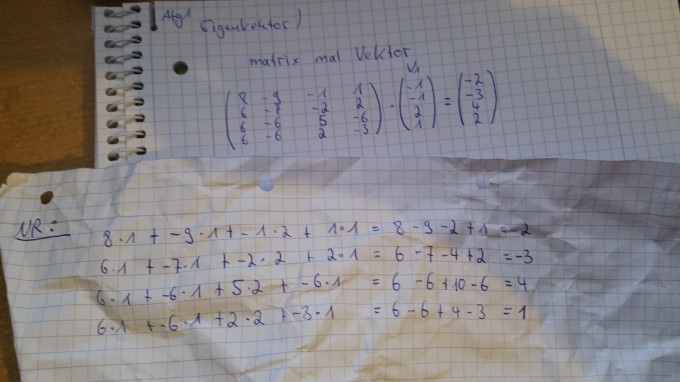 Afg1
Eigenvektor)
matrix mal Vektor
V1
8 -9 -1 1 -1 -2
6 -7 -2 2 -1 -3
6 -6 5 -6 2 4
6 -6 2 -3 1 2
( ) · ( ) = ( )
NR:
8·1 + -9·1 + -1·2 + 1·1 = 8 - 9 - 2 + 1 = -2
6·1 + -7·1 + -2·2 + 2·1 = 6 - 7 - 4 + 2 = -3
6·1 + -6·1 + 5·2 + -6·1 = 6 - 6 + 10 - 6 = 4
6·1 + -6·1 + 2·2 + -3·1 = 6 - 6 + 4 - 3 = 1